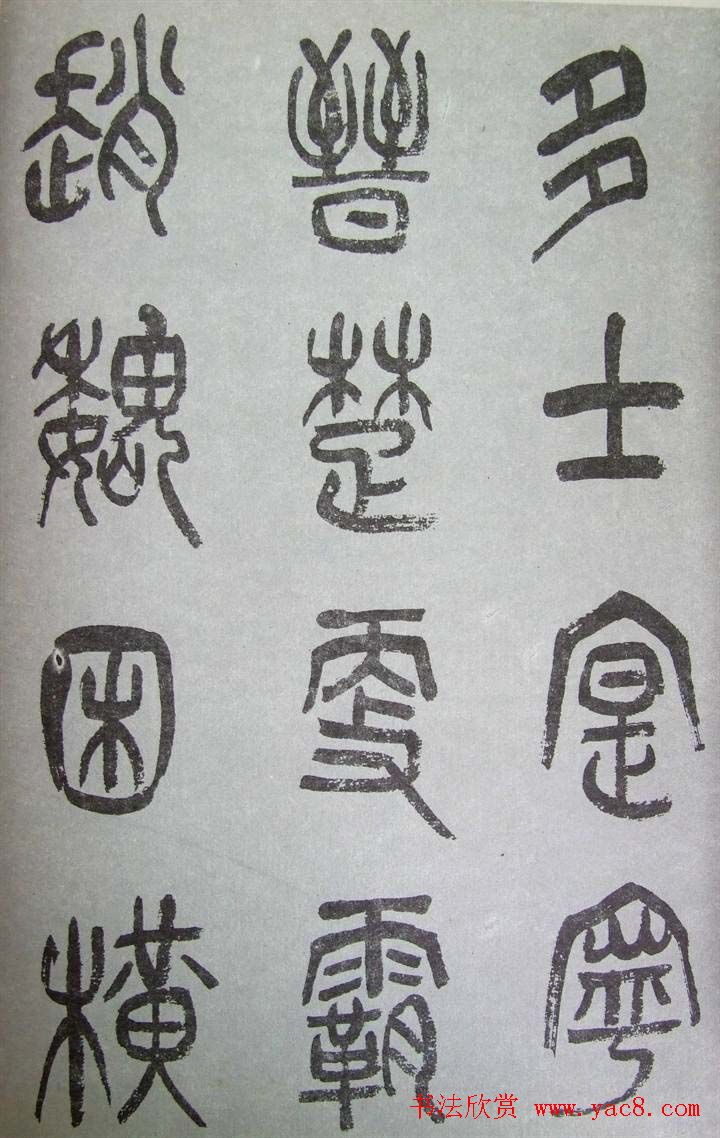 多士寔寧
晉楚更霸
趙魏困橫
书法欣赏 www.yac8.com